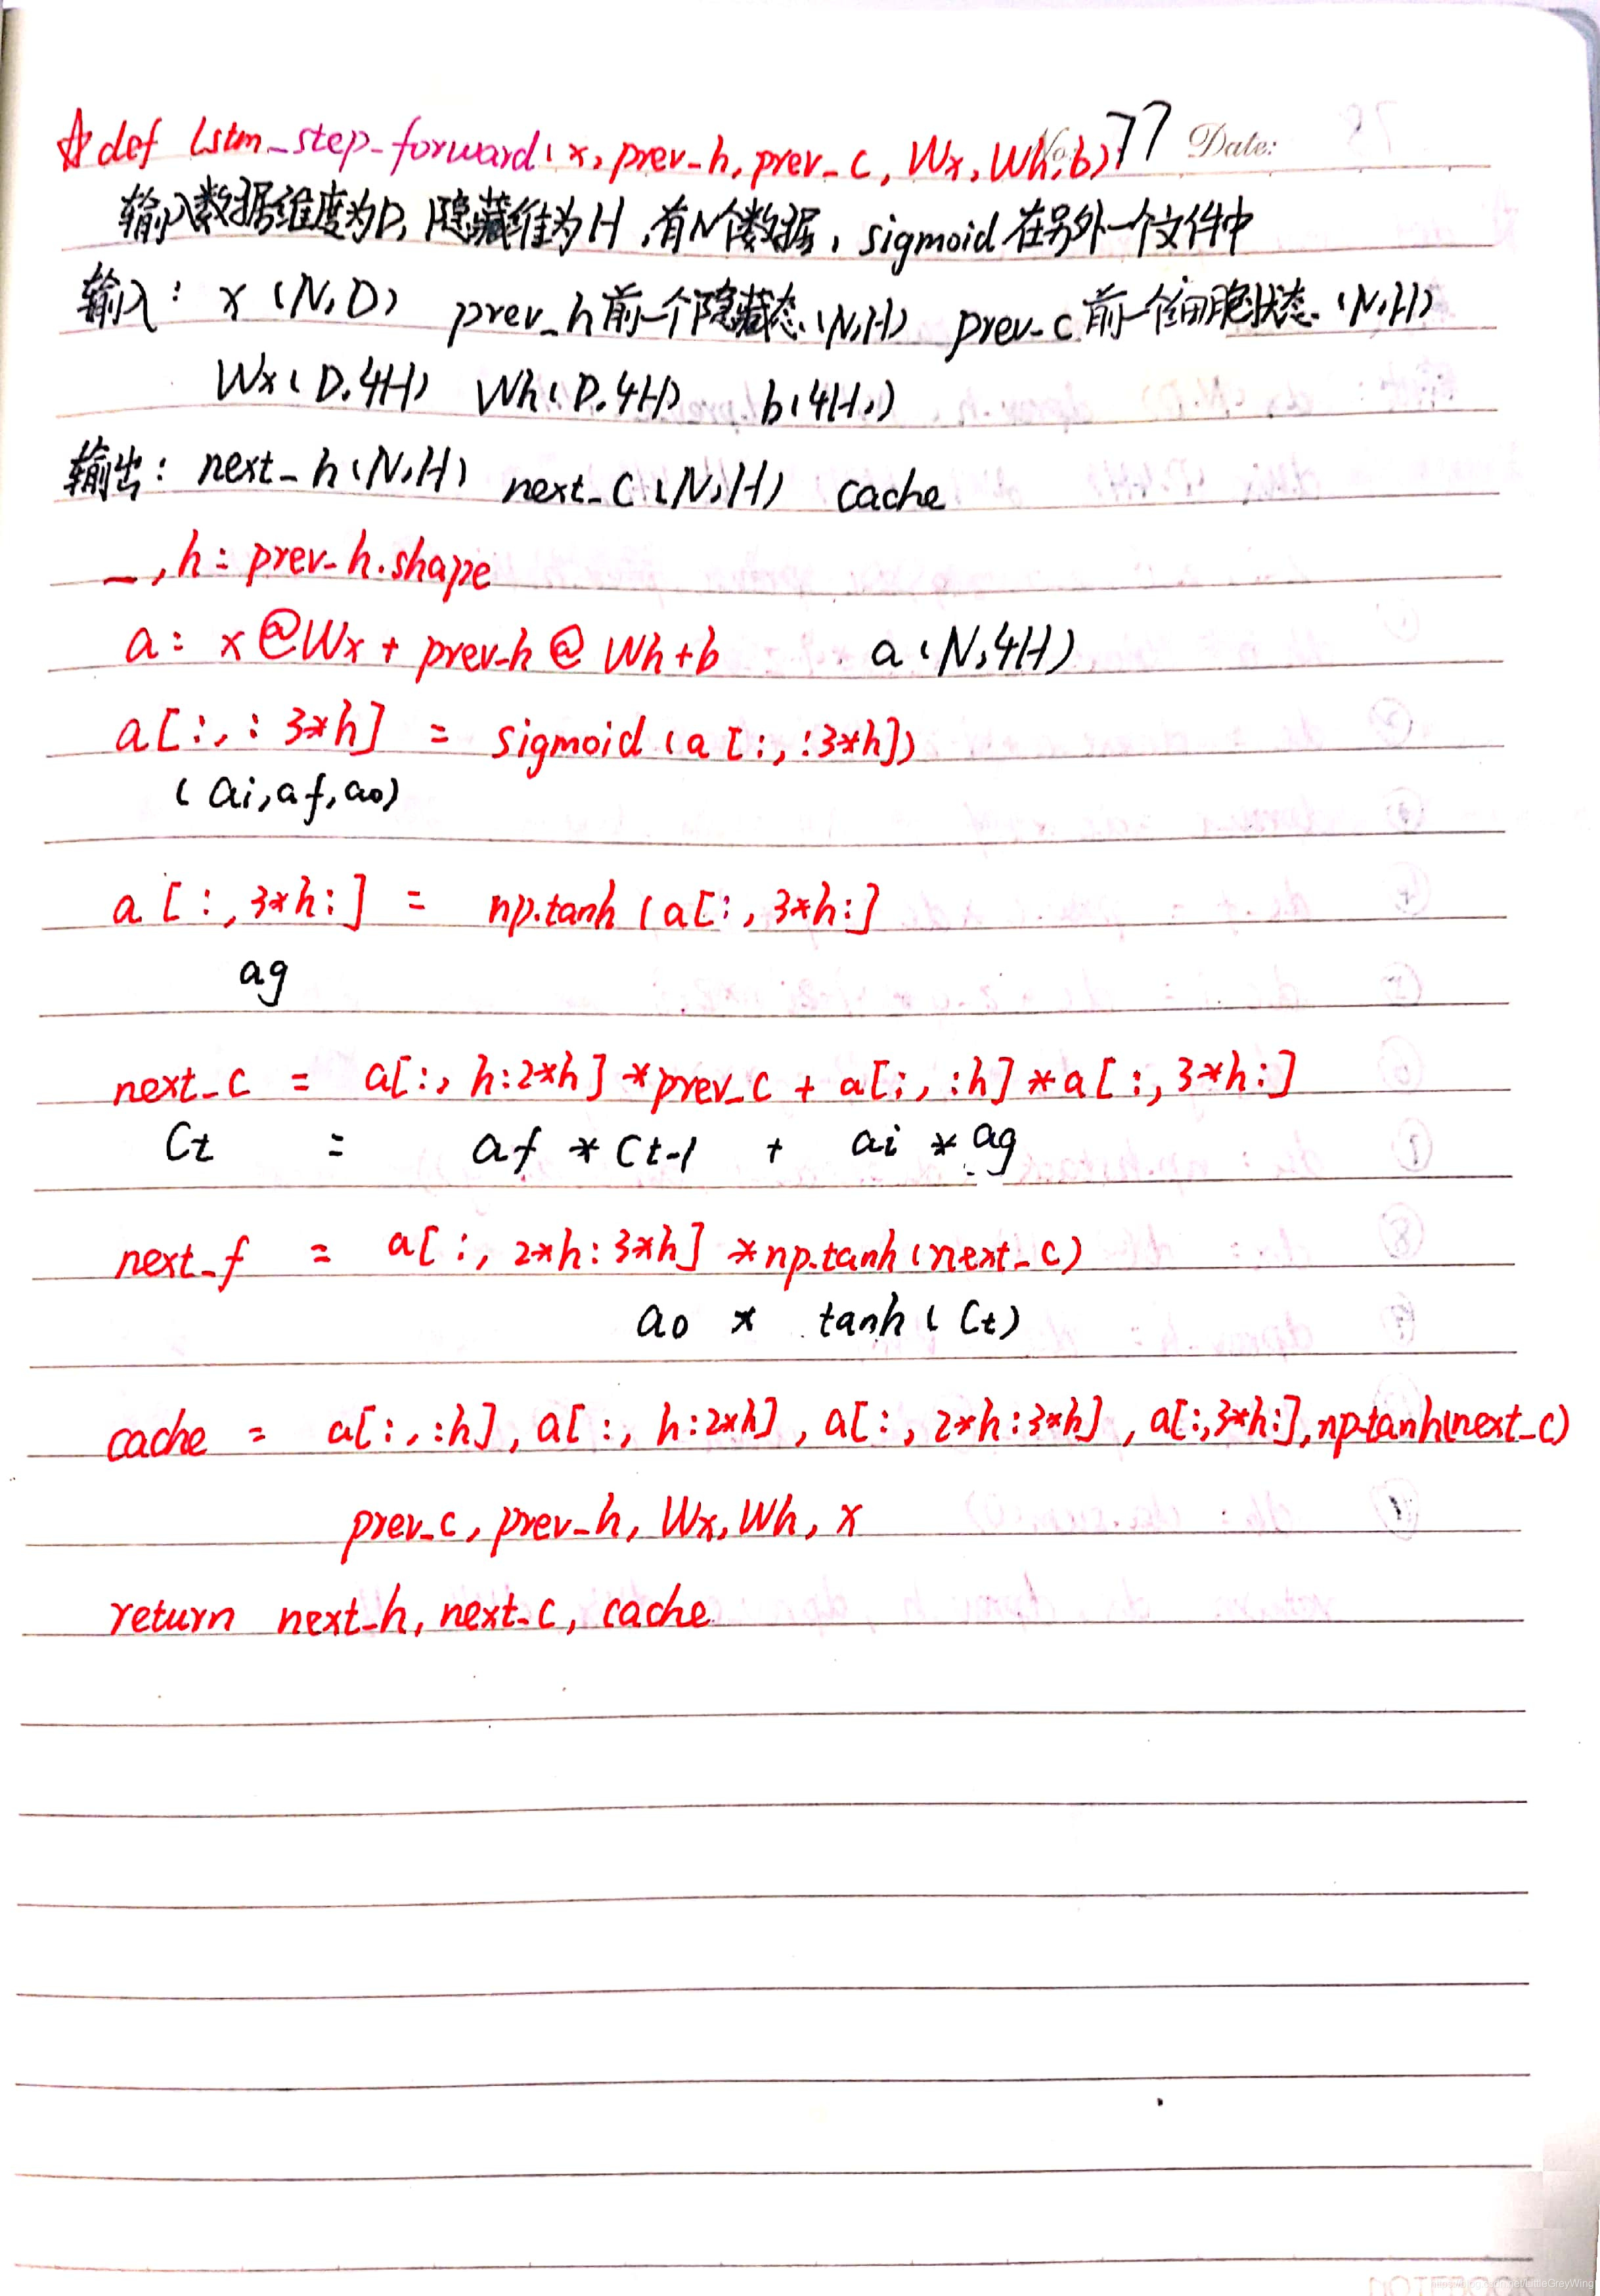 ☆ def lstm_step_forward(x, prev_h, prev_c, Wx, Wh, b) No. 77 Date:
输入数据维度为D, 隐藏维为H, 有N个数据, sigmoid在另外一个文件中
输入: x (N,D) prev_h前一个隐藏态(N,H) prev_c前一个细胞状态(N,H)
Wx(D,4H) Wh(D,4H) b(4H,)
输出: next_h(N,H) next_c(N,H) cache
_, h = prev_h.shape
a = x@Wx + prev_h@Wh+b a(N,4H)
a[:, :3*h] = sigmoid(a[:, :3*h])
(ai, af, ao)
a[:, 3*h:] = np.tanh(a[:, 3*h:]
ag
next_c = a[:, h:2*h]*prev_c + a[:, :h]*a[:, 3*h:]
Ct = af * Ct-1 + ai * ag
next_f = a[:, 2*h:3*h] *np.tanh(next_c)
ao * tanh(Ct)
cache = a[:, :h], a[:, h:2*h], a[:, 2*h:3*h], a[:, 3*h:], np.tanh(next_c)
prev_c, prev_h, Wx, Wh, x
return next_h, next_c, cache